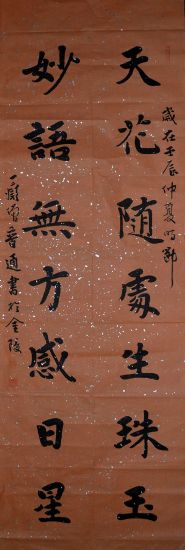 天花隨處生珠玉
歲在壬辰仲夏
妙語無方感日星
普通書於金陵